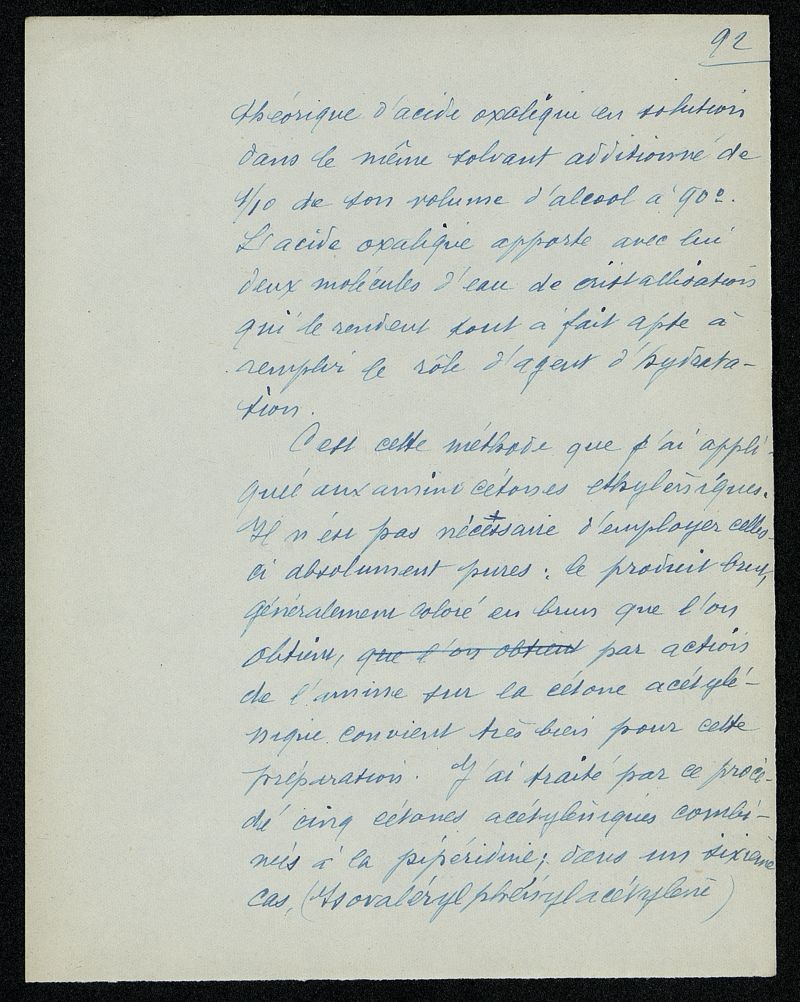 92
théorique d'acide oxalique en solution
dans le même solvant additionné de
1/10 de son volume d'alcool à 90°.
L'acide oxalique apporte avec lui
deux molécules d'eau de cristallisation
qui le rendent tout à fait apte à
remplir le rôle d'agent d'hydrata-
tion.
C'est cette méthode que j'ai appli-
quée aux amino cétones éthyléniques.
Il n'est pas nécessaire d'employer celles-
ci absolument pures : le produit brut,
généralement coloré en brun que l'on
obtient, que l'on obtient par action
de l'amine sur la cétone acétylé-
nique convient très bien pour cette
préparation. J'ai traité par ce procé-
dé cinq cétones acétyléniques combi-
nées à la pipéridine; dans un sixième
cas, (Isovalérylphénylacétylène)